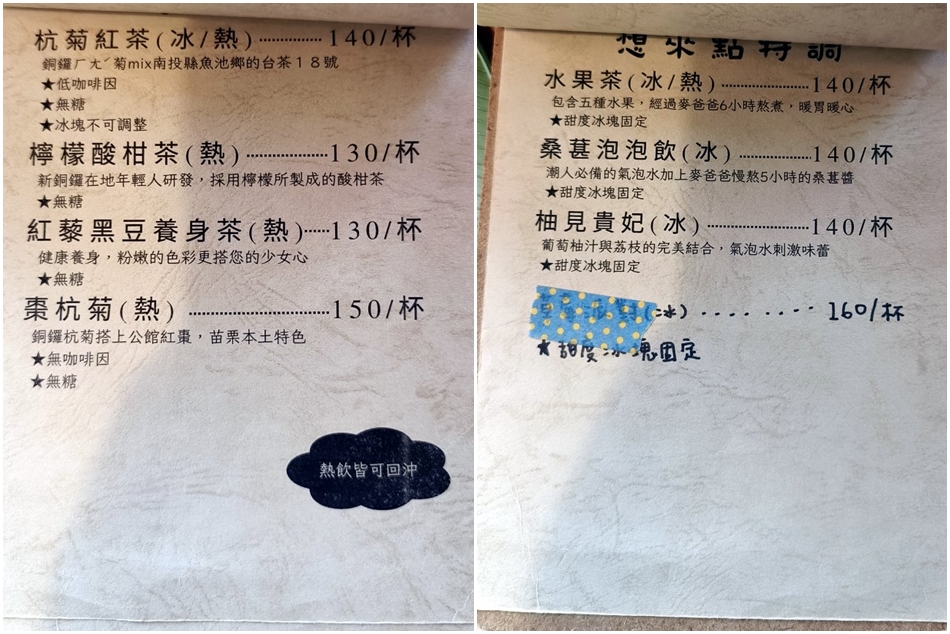 杭菊紅茶(冰/熱)············140/杯
銅鑼ㄏㄤˊ菊mix南投縣魚池鄉的台茶18號
★低咖啡因
★無糖
★冰塊不可調整
檸檬酸柑茶(熱)················130/杯
新銅鑼在地年輕人研發，採用檸檬所製成的酸柑茶
★無糖
紅藜黑豆養身茶(熱)·····130/杯
健康養身，粉嫩的色彩更搭您的少女心
★無糖
棗杭菊(熱)·····························150/杯
銅鑼杭菊搭上公館紅棗，苗栗本土特色
★無咖啡因
★無糖
熱飲皆可回沖
想來點特調
水果茶(冰/熱)·················140/杯
包含五種水果，經過麥爸爸6小時熬煮，暖胃暖心
★甜度冰塊固定
桑葚泡泡飲(冰)··············140/杯
潮人必備的氣泡水加上麥爸爸慢熬5小時的桑葚醬
★甜度冰塊固定
柚見貴妃(冰)····················140/杯
葡萄柚汁與荔枝的完美結合，氣泡水刺激味蕾
★甜度冰塊固定
(冰)........160/杯
★甜度冰塊固定